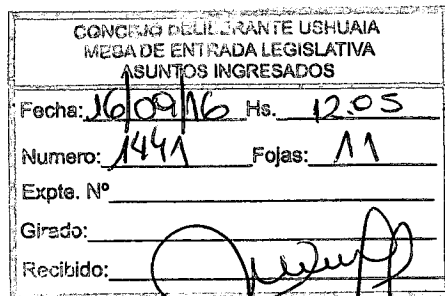 CONCEJO DELIBERANTE USHUAIA
MESA DE ENTRADA LEGISLATIVA
ASUNTOS INGRESADOS
Fecha: 16/09/16 Hs. 12.05
Numero: 1441 Fojas: 11
Expte. Nº
Girado:
Recibido: